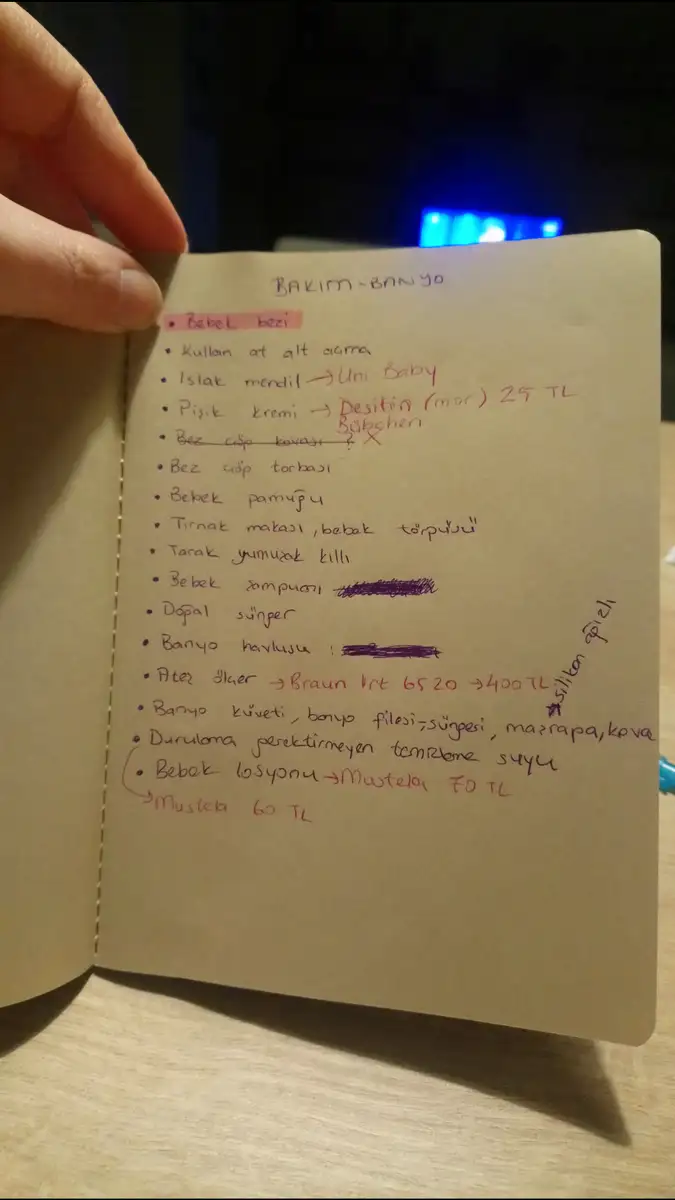 BAKIM-BANYO
• Bebek bezi
• Kullan at alt açma
• Islak mendil → Uni Baby
• Pişik kremi → Desitin (mor) 25 TL
Bübchen
• Bez çöp kovası ? X
• Bez çöp torbası
• Bebek pamuğu
• Tırnak makası, bebek törpüsü
• Tarak yumuşak kıllı
• Bebek şampuanı
• Doğal sünger
• Banyo havlusu :
• Ateş ölçer → Braun Irt 6520 → 400 TL
silikon ağızlı
• Banyo küveti, banyo filesi-süngeri, maşrapa, kova
• Durulama gerektirmeyen temizleme suyu
• Bebek losyonu → Mustela 70 TL
→ Mustela 60 TL